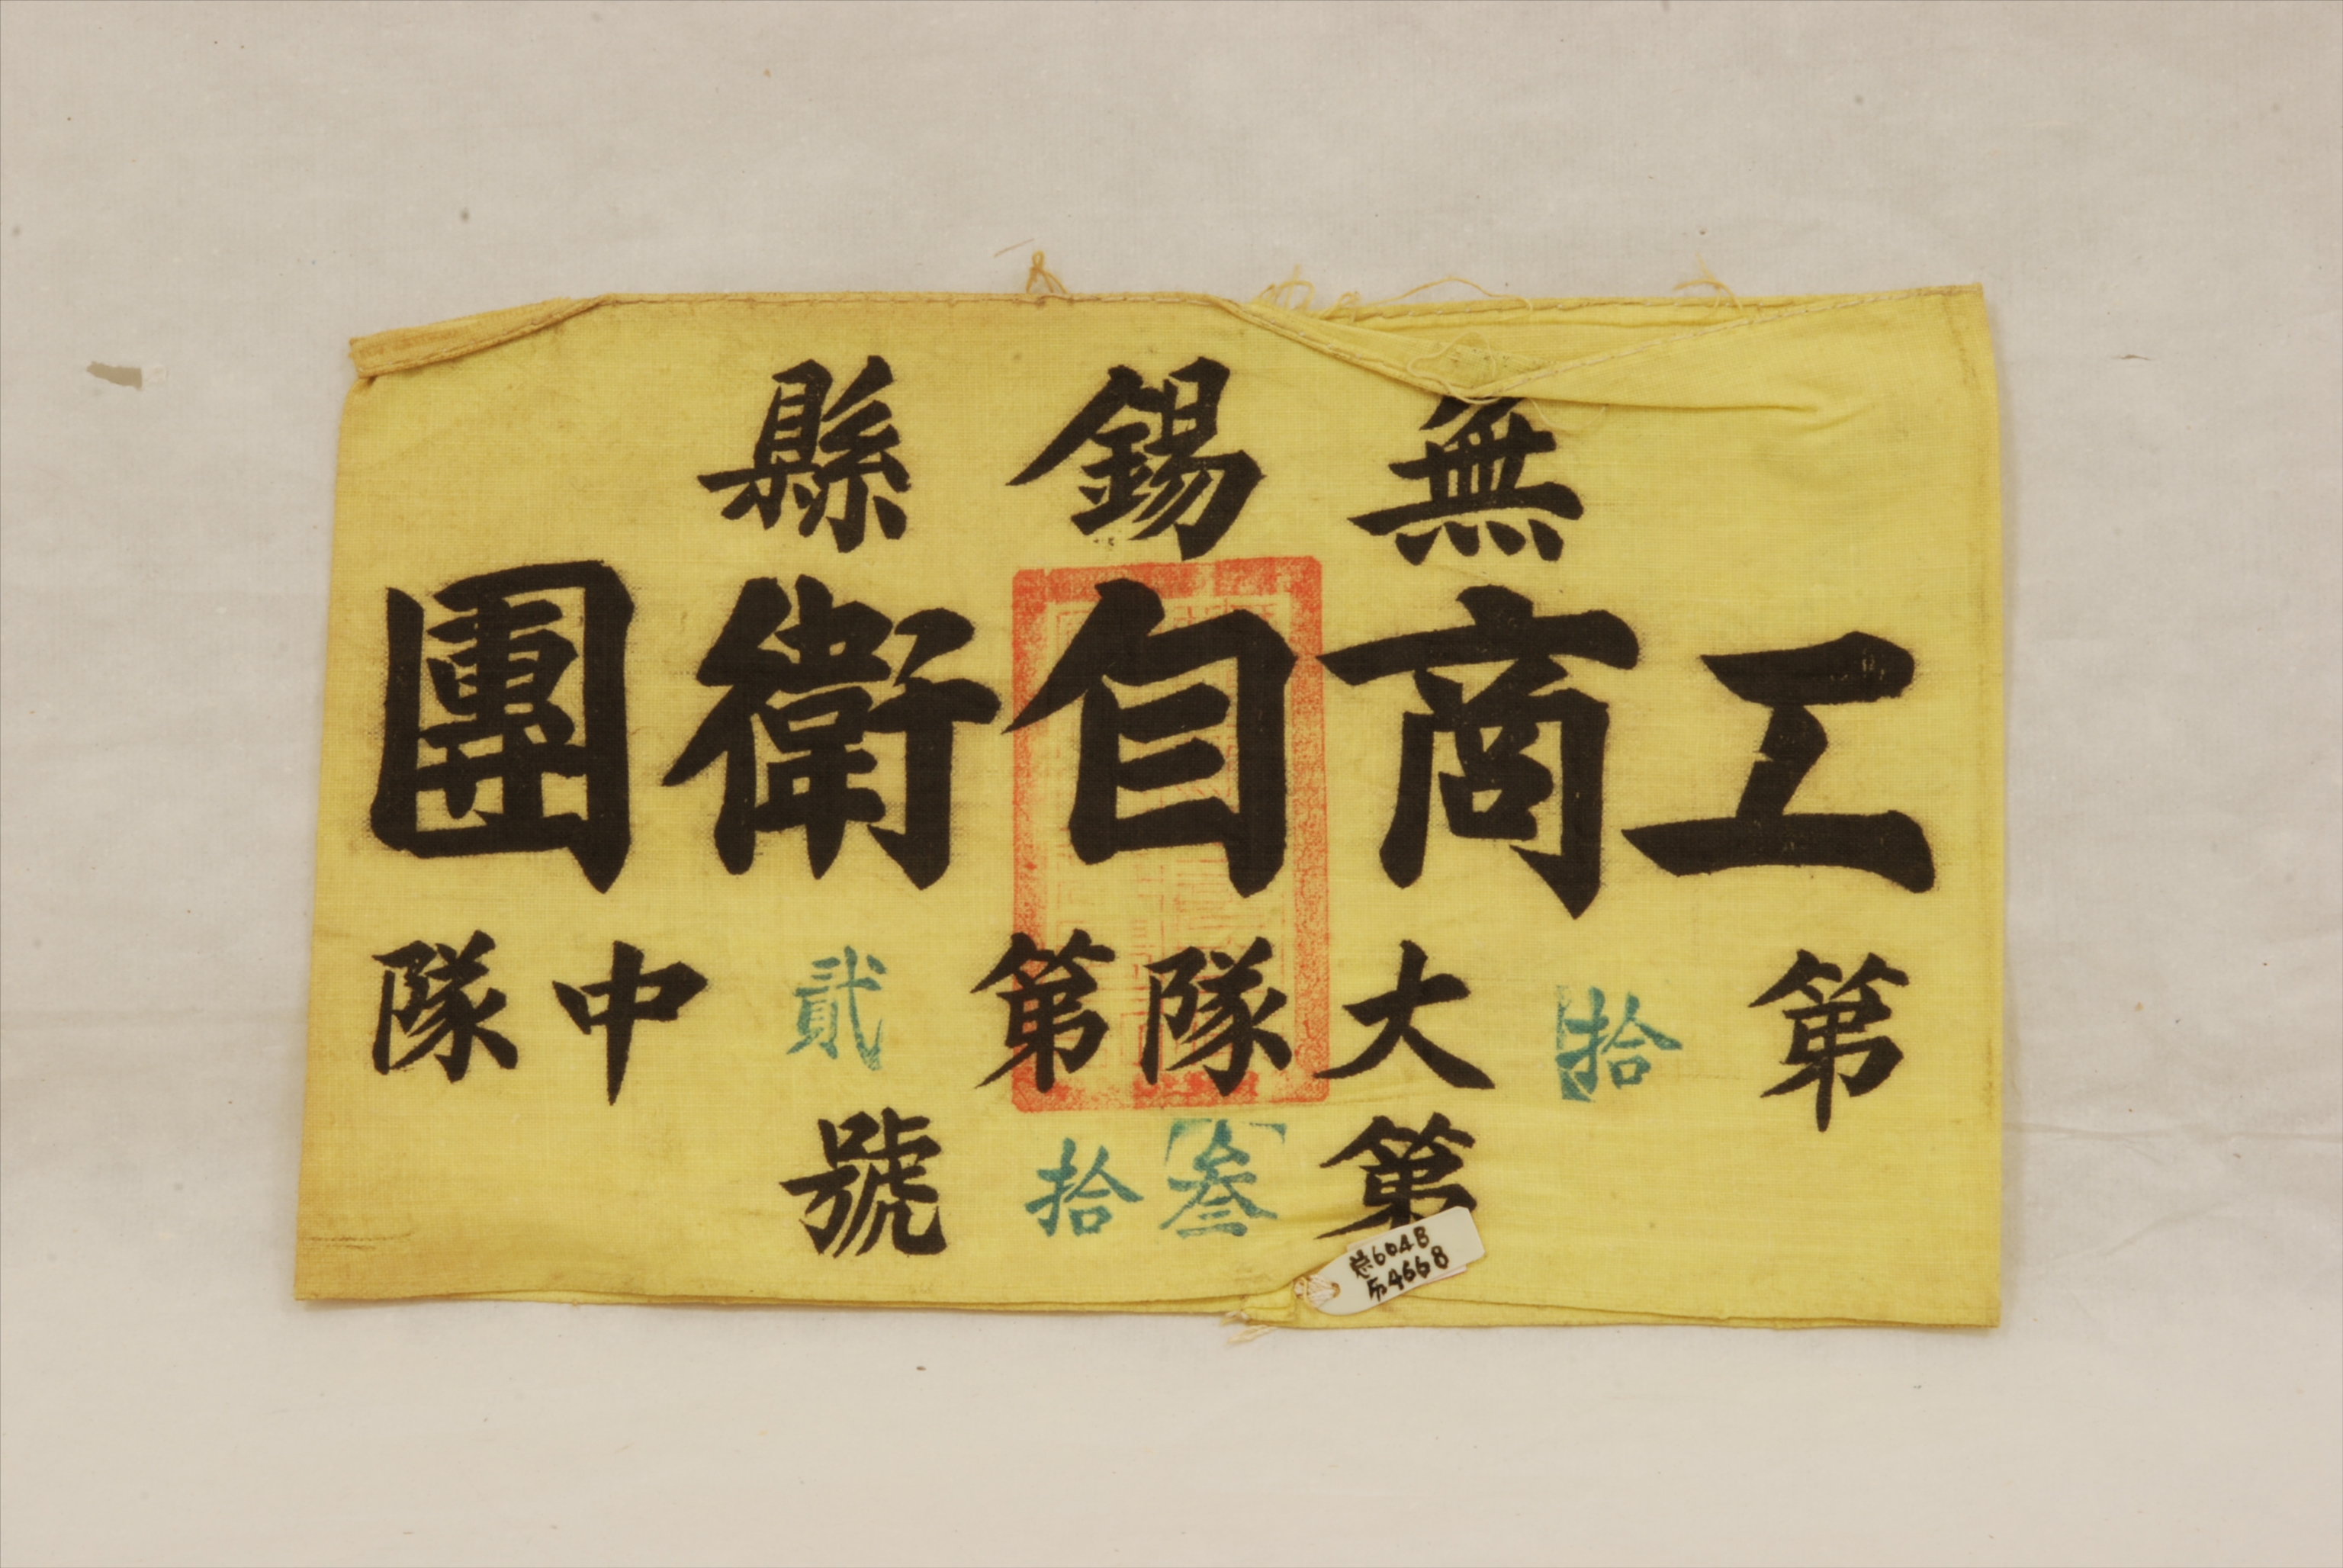 無錫縣
工商自衛團
第拾大隊第貳中隊
第叁拾號
总6048
54668